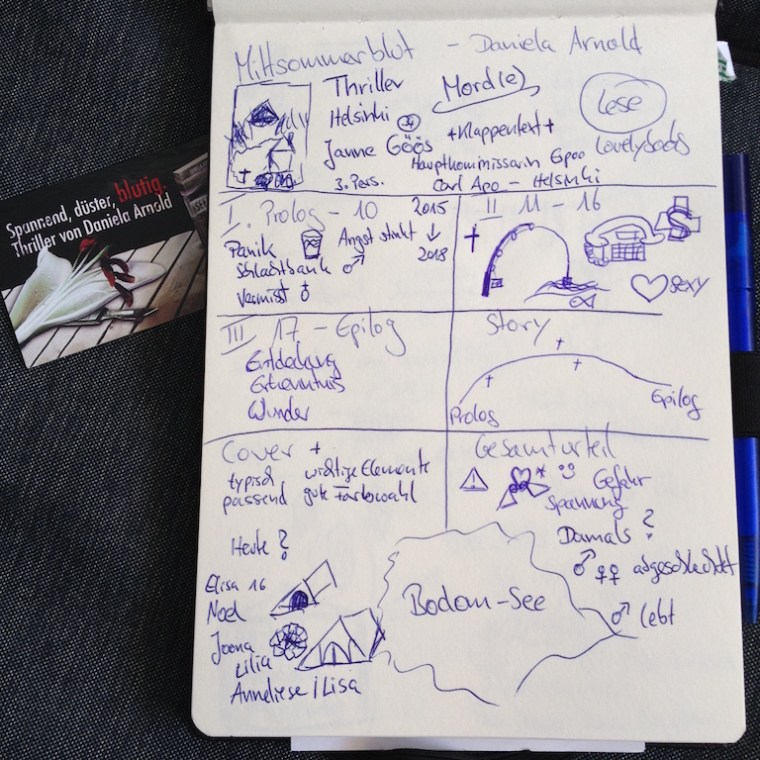 Mittsommerblut - Daniela Arnold
Thriller
Mord(e)
Lese
Helsinki
Janne Göös
+Klappentext+
Lovelybooks
Hauptkommissarin Epoo
3. Pers.
Carl Apo - Helsinki
Spannend, düster, blutig.
Thriller von Daniela Arnold
I. Prolog - 10
2015
↓
2018
Panik
Angst stinkt
Schlachtbank ♂
Vermisst
II 11 - 16
$
sexy
III 17 - Epilog
Entdeckung
Erkenntnis
Wunder
Story
Prolog
Epilog
Cover +
typisch
passend
wichtige Elemente
gute Farbwahl
Gesamturteil
Gefahr
Spannung
Heute?
Elisa 16
Noel
Joona
Lilia
Anneliese / Lisa
Bodom-See
Damals?
♂ ♀♀ abgeschlachtet
♂ lebt